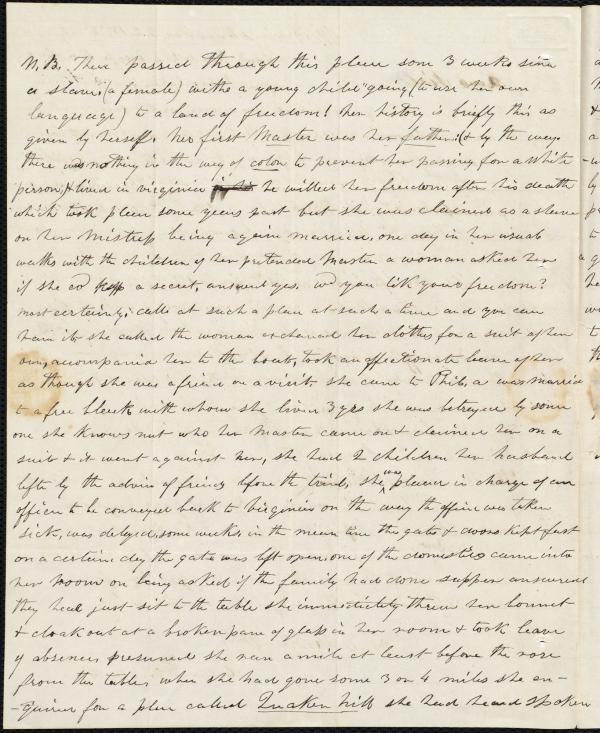 N.B. Ther passed through this place som 3 weeks since
a slave (a female) withe a young child "going (to use her own
language) to a land of freedom! her history is briefly this as
given by herself. her first Master was her father. (& by the way
there was nothing in the way of color to prevent her passing for a white
person) lived in virginia he willed her freedom after his death
which took place some years past but she was claimed as a slave
on her Mistress being again married, one day in her usual
walks with the children of her pretended Master a woman asked her
if she cd keep a secret, answered yes. wd you lik your freedom?
most certainly; calle at such a place at such a time and you can
have it she called the woman exchaned her clothes for a suit of her
own, accompanied her to the boat, took an affectionate leave of her
as though she was a friend on a visit she came to Phila was married
to a free black with whom she lived 3 yrs she was betrayed by some
one she knows not who her Master came on & claimed her on a
suit & it went against her, she had 2 children her husband
left by the advice of friends before the trial, she was placed in charge of an
officer to be conveyed back to Virginia on the way the officer was taken
sick, was delayed some weeks, in the mean time the gate & doors kept fast
on a certain day the gate was left open one of the domestics came into
her room on being asked if the family had done supper answered
they had just sit to the table she immediately threw her bonnet
& cloak out at a broken pane of glass in her room & took leave
of absence, presumed she ran a mile at least before the rose
from the table, when she had gone some 3 or 4 miles she en-
-quired for a place called Quaker hill she had heard spoken